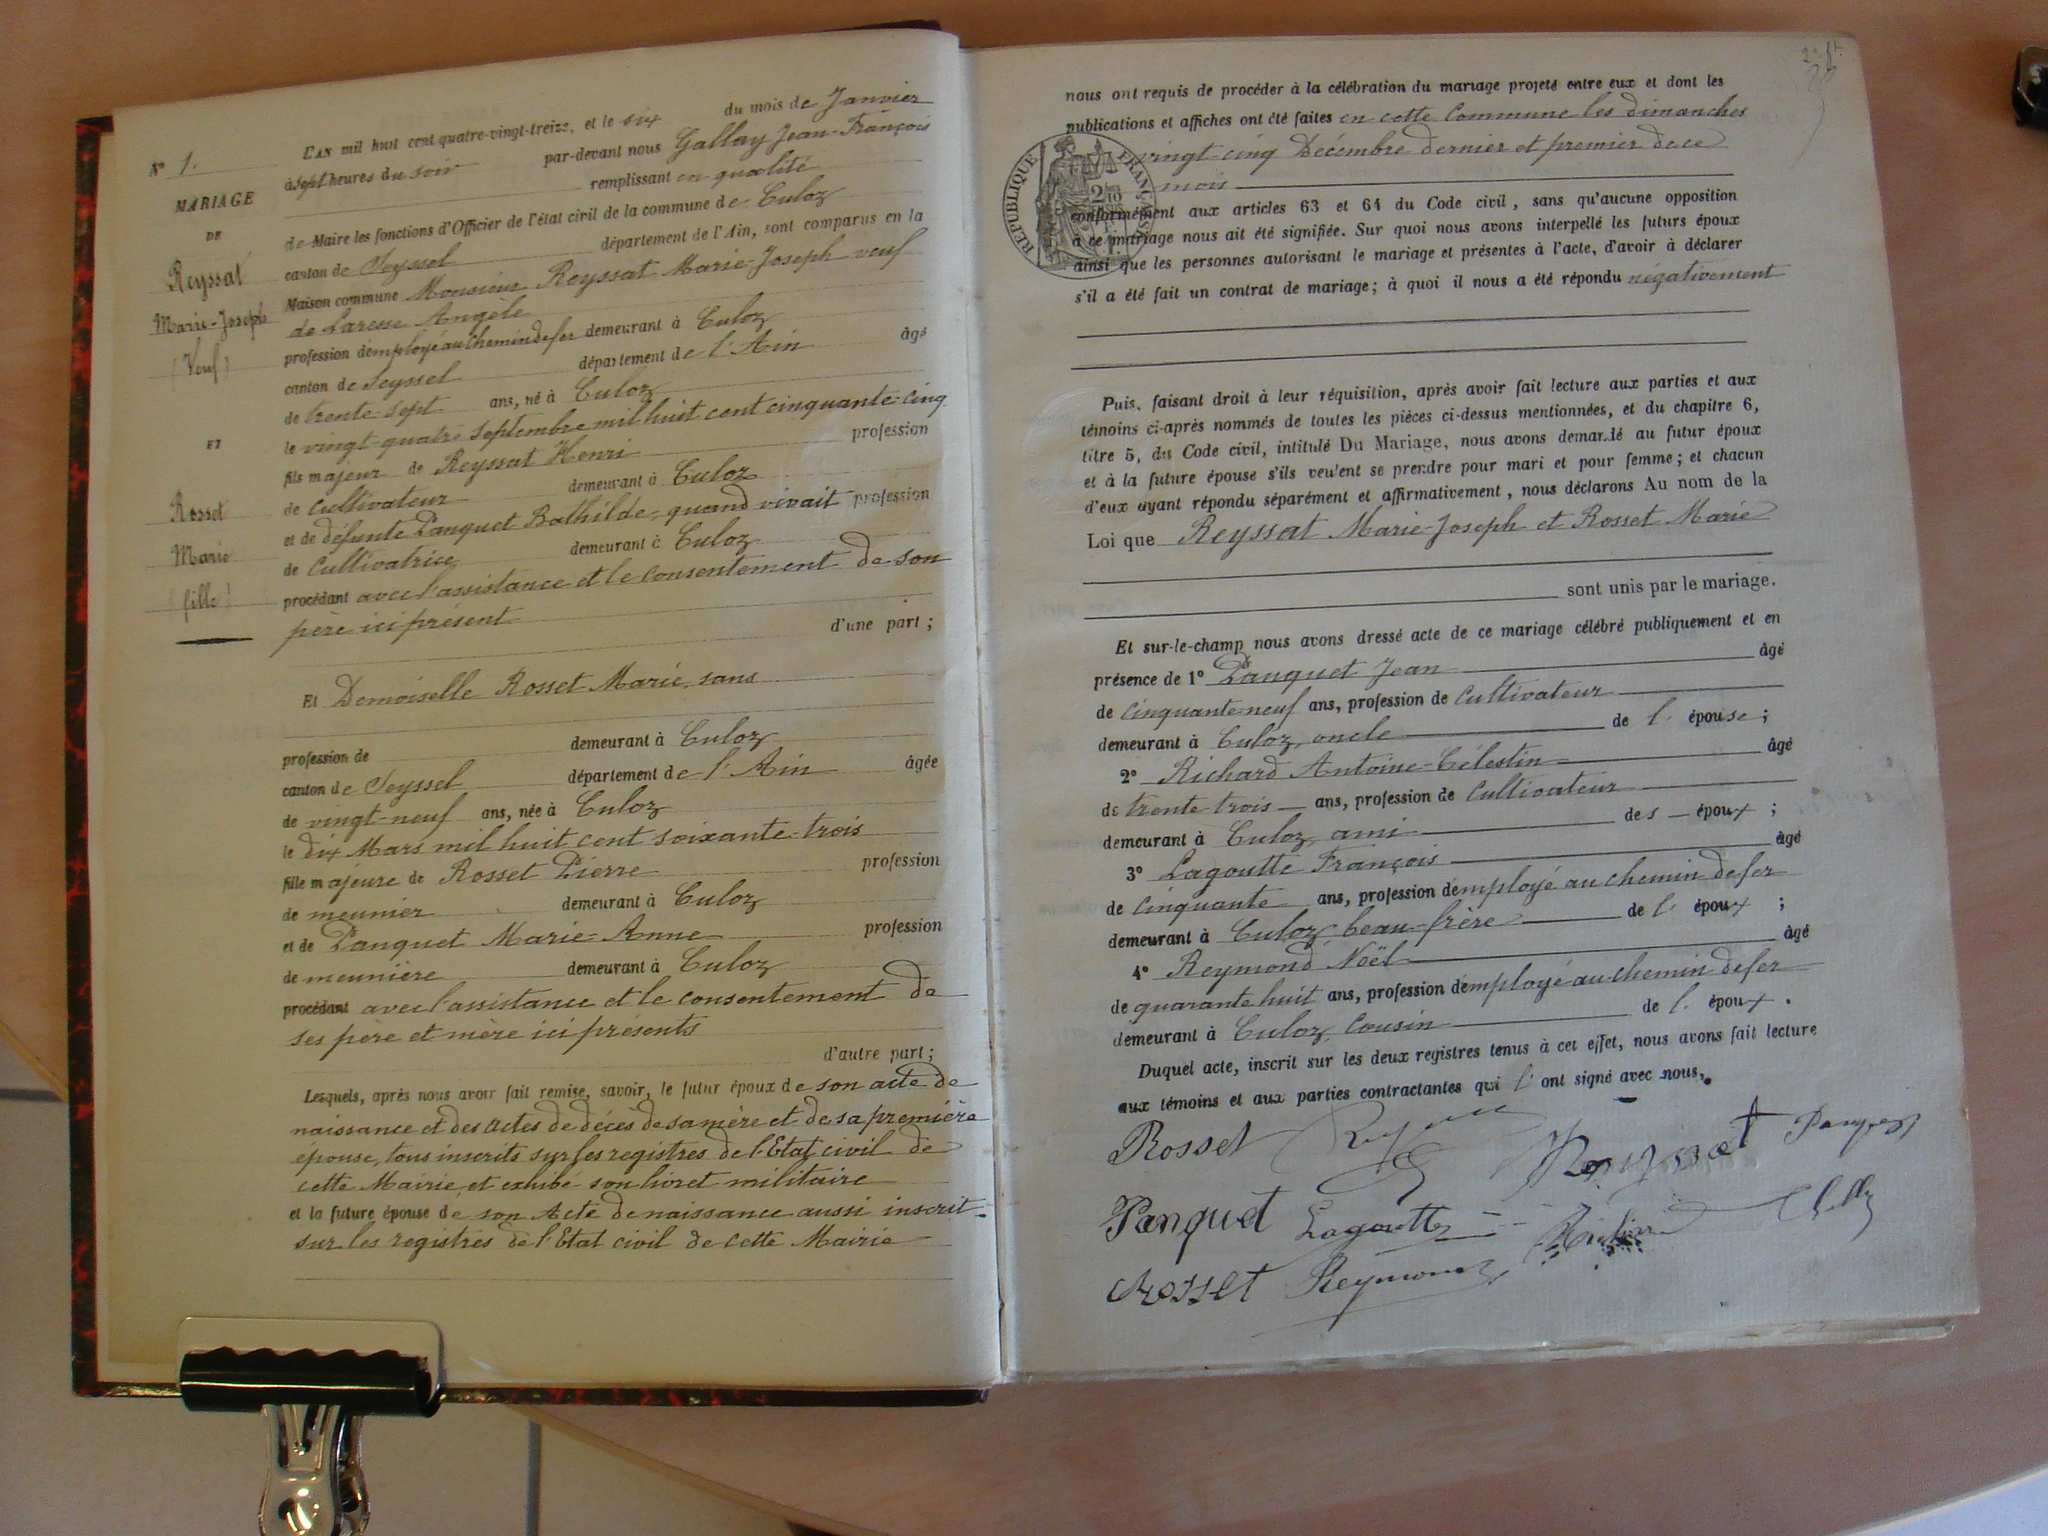 N° 1.
MARIAGE
DE
Reyssat
Marie-Joseph
(Veuf)
ET
Rosset
Marie
(fille)
L'AN mil huit cent quatre-vingt-treize, et le six du mois de Janvier
à sept heures du soir par-devant nous Gallay Jean-François
remplissant en qualité
de Maire les fonctions d'Officier de l'état civil de la commune de Culoz
canton de Seyssel département de l'Ain, sont comparus en la
Maison commune Monsieur Reyssat Marie-Joseph veuf
de Laresse Angèle
profession d'employé au chemin de fer demeurant à Culoz
canton de Seyssel département de l'Ain âgé
de trente-sept ans, né à Culoz
le vingt-quatre septembre mil huit cent cinquante-cinq
fils majeur de Reyssat Henri profession
de cultivateur demeurant à Culoz
et de défunte Panquet Bathilde, quand vivait profession
de cultivatrice demeurant à Culoz
procédant avec l'assistance et le consentement de son
père ici présent
d'une part ;
Et Demoiselle Rosset Marie, sans
profession de demeurant à Culoz
canton de Seyssel département de l'Ain âgée
de vingt-neuf ans, née à Culoz
le dix Mars mil huit cent soixante-trois
fille majeure de Rosset Pierre profession
de meunier demeurant à Culoz
et de Panquet Marie-Anne profession
de meunière demeurant à Culoz
procédant avec l'assistance et le consentement de
ses père et mère ici présents
d'autre part ;
Lesquels, après nous avoir fait remise, savoir, le futur époux de son acte de
naissance et des actes de décès de sa mère et de sa première
épouse, tous inscrits sur les registres de l'Etat civil de
cette Mairie, et exhibe son livret militaire
et la future épouse de son Acte de naissance aussi inscrit
sur les registres de l'Etat civil de cette Mairie
nous ont requis de procéder à la célébration du mariage projeté entre eux et dont les
publications et affiches ont été faites en cette Commune les dimanches
vingt-cinq Décembre dernier et premier de ce
mois
RÉPUBLIQUE FRANÇAISE
conformément aux articles 63 et 64 du Code civil, sans qu'aucune opposition
à ce mariage nous ait été signifiée. Sur quoi nous avons interpellé les futurs époux
ainsi que les personnes autorisant le mariage et présentes à l'acte, d'avoir à déclarer
s'il a été fait un contrat de mariage ; à quoi il nous a été répondu négativement
Puis, faisant droit à leur réquisition, après avoir fait lecture aux parties et aux
témoins ci-après nommés de toutes les pièces ci-dessus mentionnées, et du chapitre 6,
titre 5, du Code civil, intitulé Du Mariage, nous avons demandé au futur époux
et à la future épouse s'ils veulent se prendre pour mari et pour femme ; et chacun
d'eux ayant répondu séparément et affirmativement, nous déclarons Au nom de la
Loi que Reyssat Marie-Joseph et Rosset Marie
sont unis par le mariage.
Et sur-le-champ nous avons dressé acte de ce mariage célébré publiquement et en
présence de 1° Panquet Jean âgé
de cinquante-neuf ans, profession de cultivateur
demeurant à Culoz, oncle de l'épouse ;
2° Richard Antoine-Célestin âgé
de trente-trois ans, profession de cultivateur
demeurant à Culoz, ami des époux ;
3° Lagoutte François âgé
de cinquante ans, profession d'employé au chemin de fer
demeurant à Culoz, beau-frère de l'époux ;
4° Reymond Noël âgé
de quarante-huit ans, profession d'employé au chemin de fer
demeurant à Culoz, cousin de l'époux.
Duquel acte, inscrit sur les deux registres tenus à cet effet, nous avons fait lecture
aux témoins et aux parties contractantes qui l'ont signé avec nous.
Rosset Reyssat Panquet
Panquet Lagoutte
Rosset Reymond